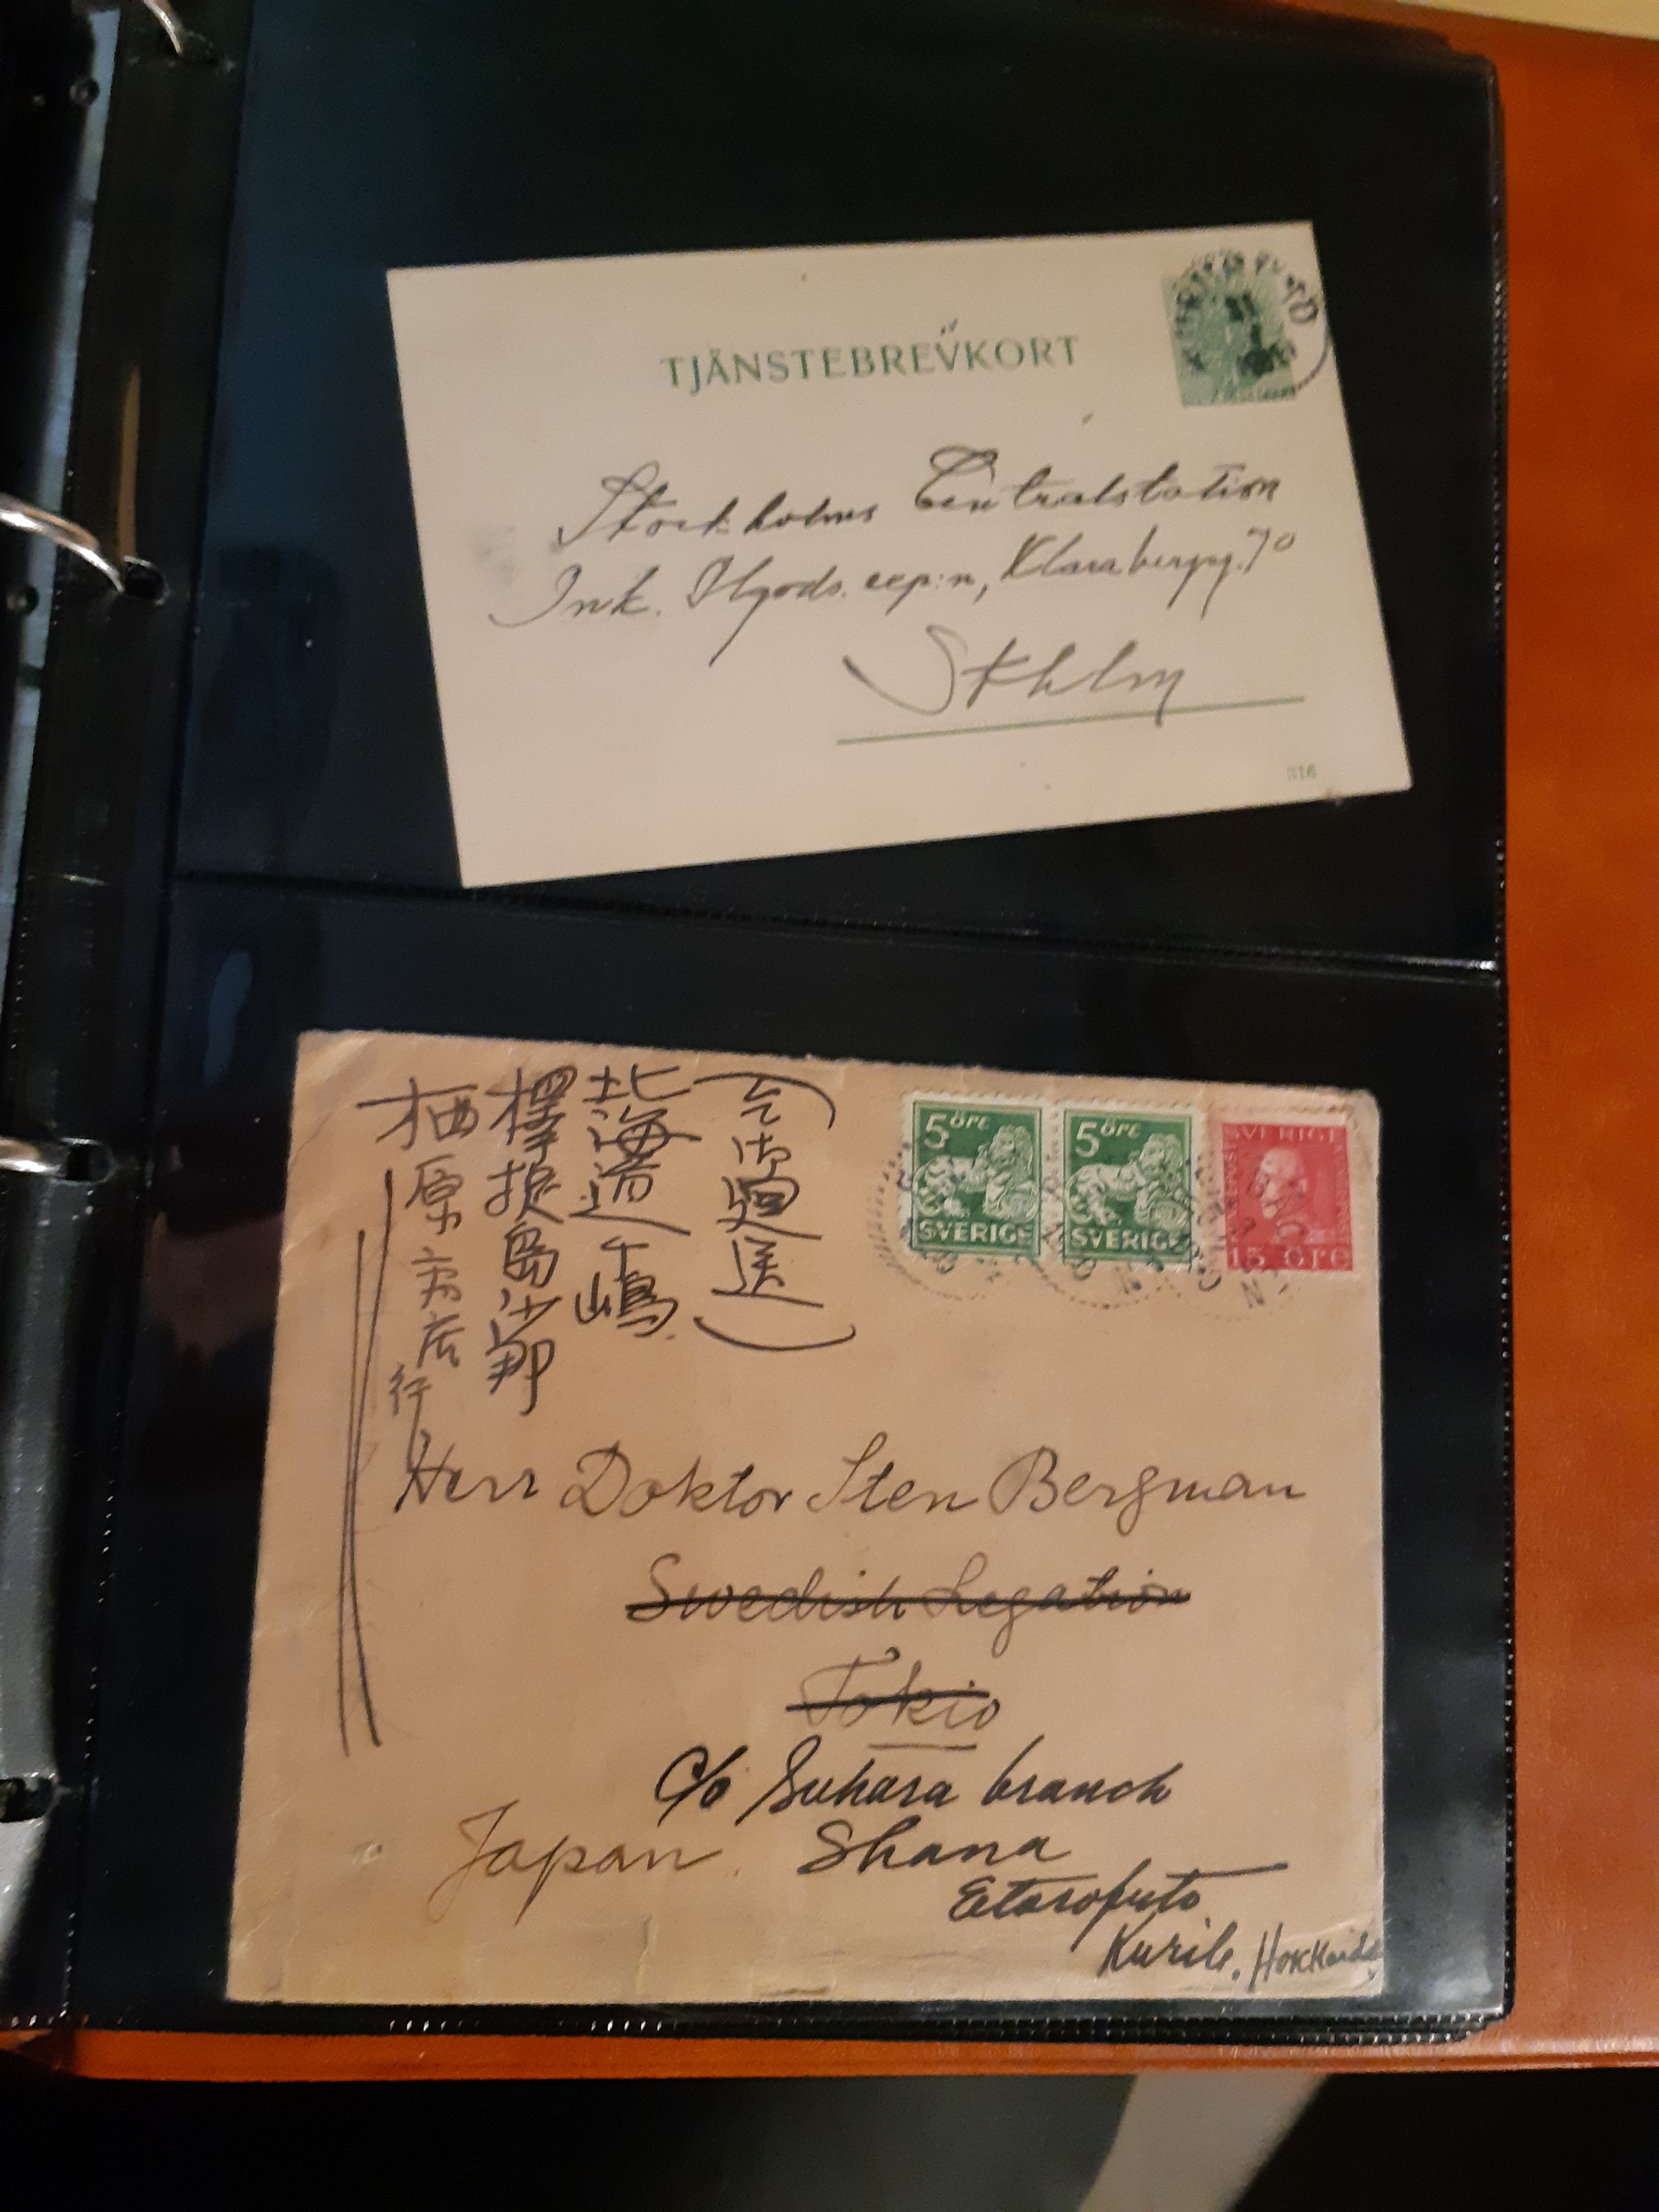 TJÄNSTEBREVKORT
Stockholms Centralstation
Ink. Ilgods. exp:n, Klarabergsg. 70
Sthlm
316
北海道千嶋
択捉島沙那
栖原商店
行
5 ÖRE
SVERIGE
5 ÖRE
SVERIGE
SVERIGE
15 ÖRE
Herr Doktor Sten Bergman
Swedish Legation
Tokio
c/o Suhara branch
Japan. Shana
Etorofuto
Kurile. Hokkaido